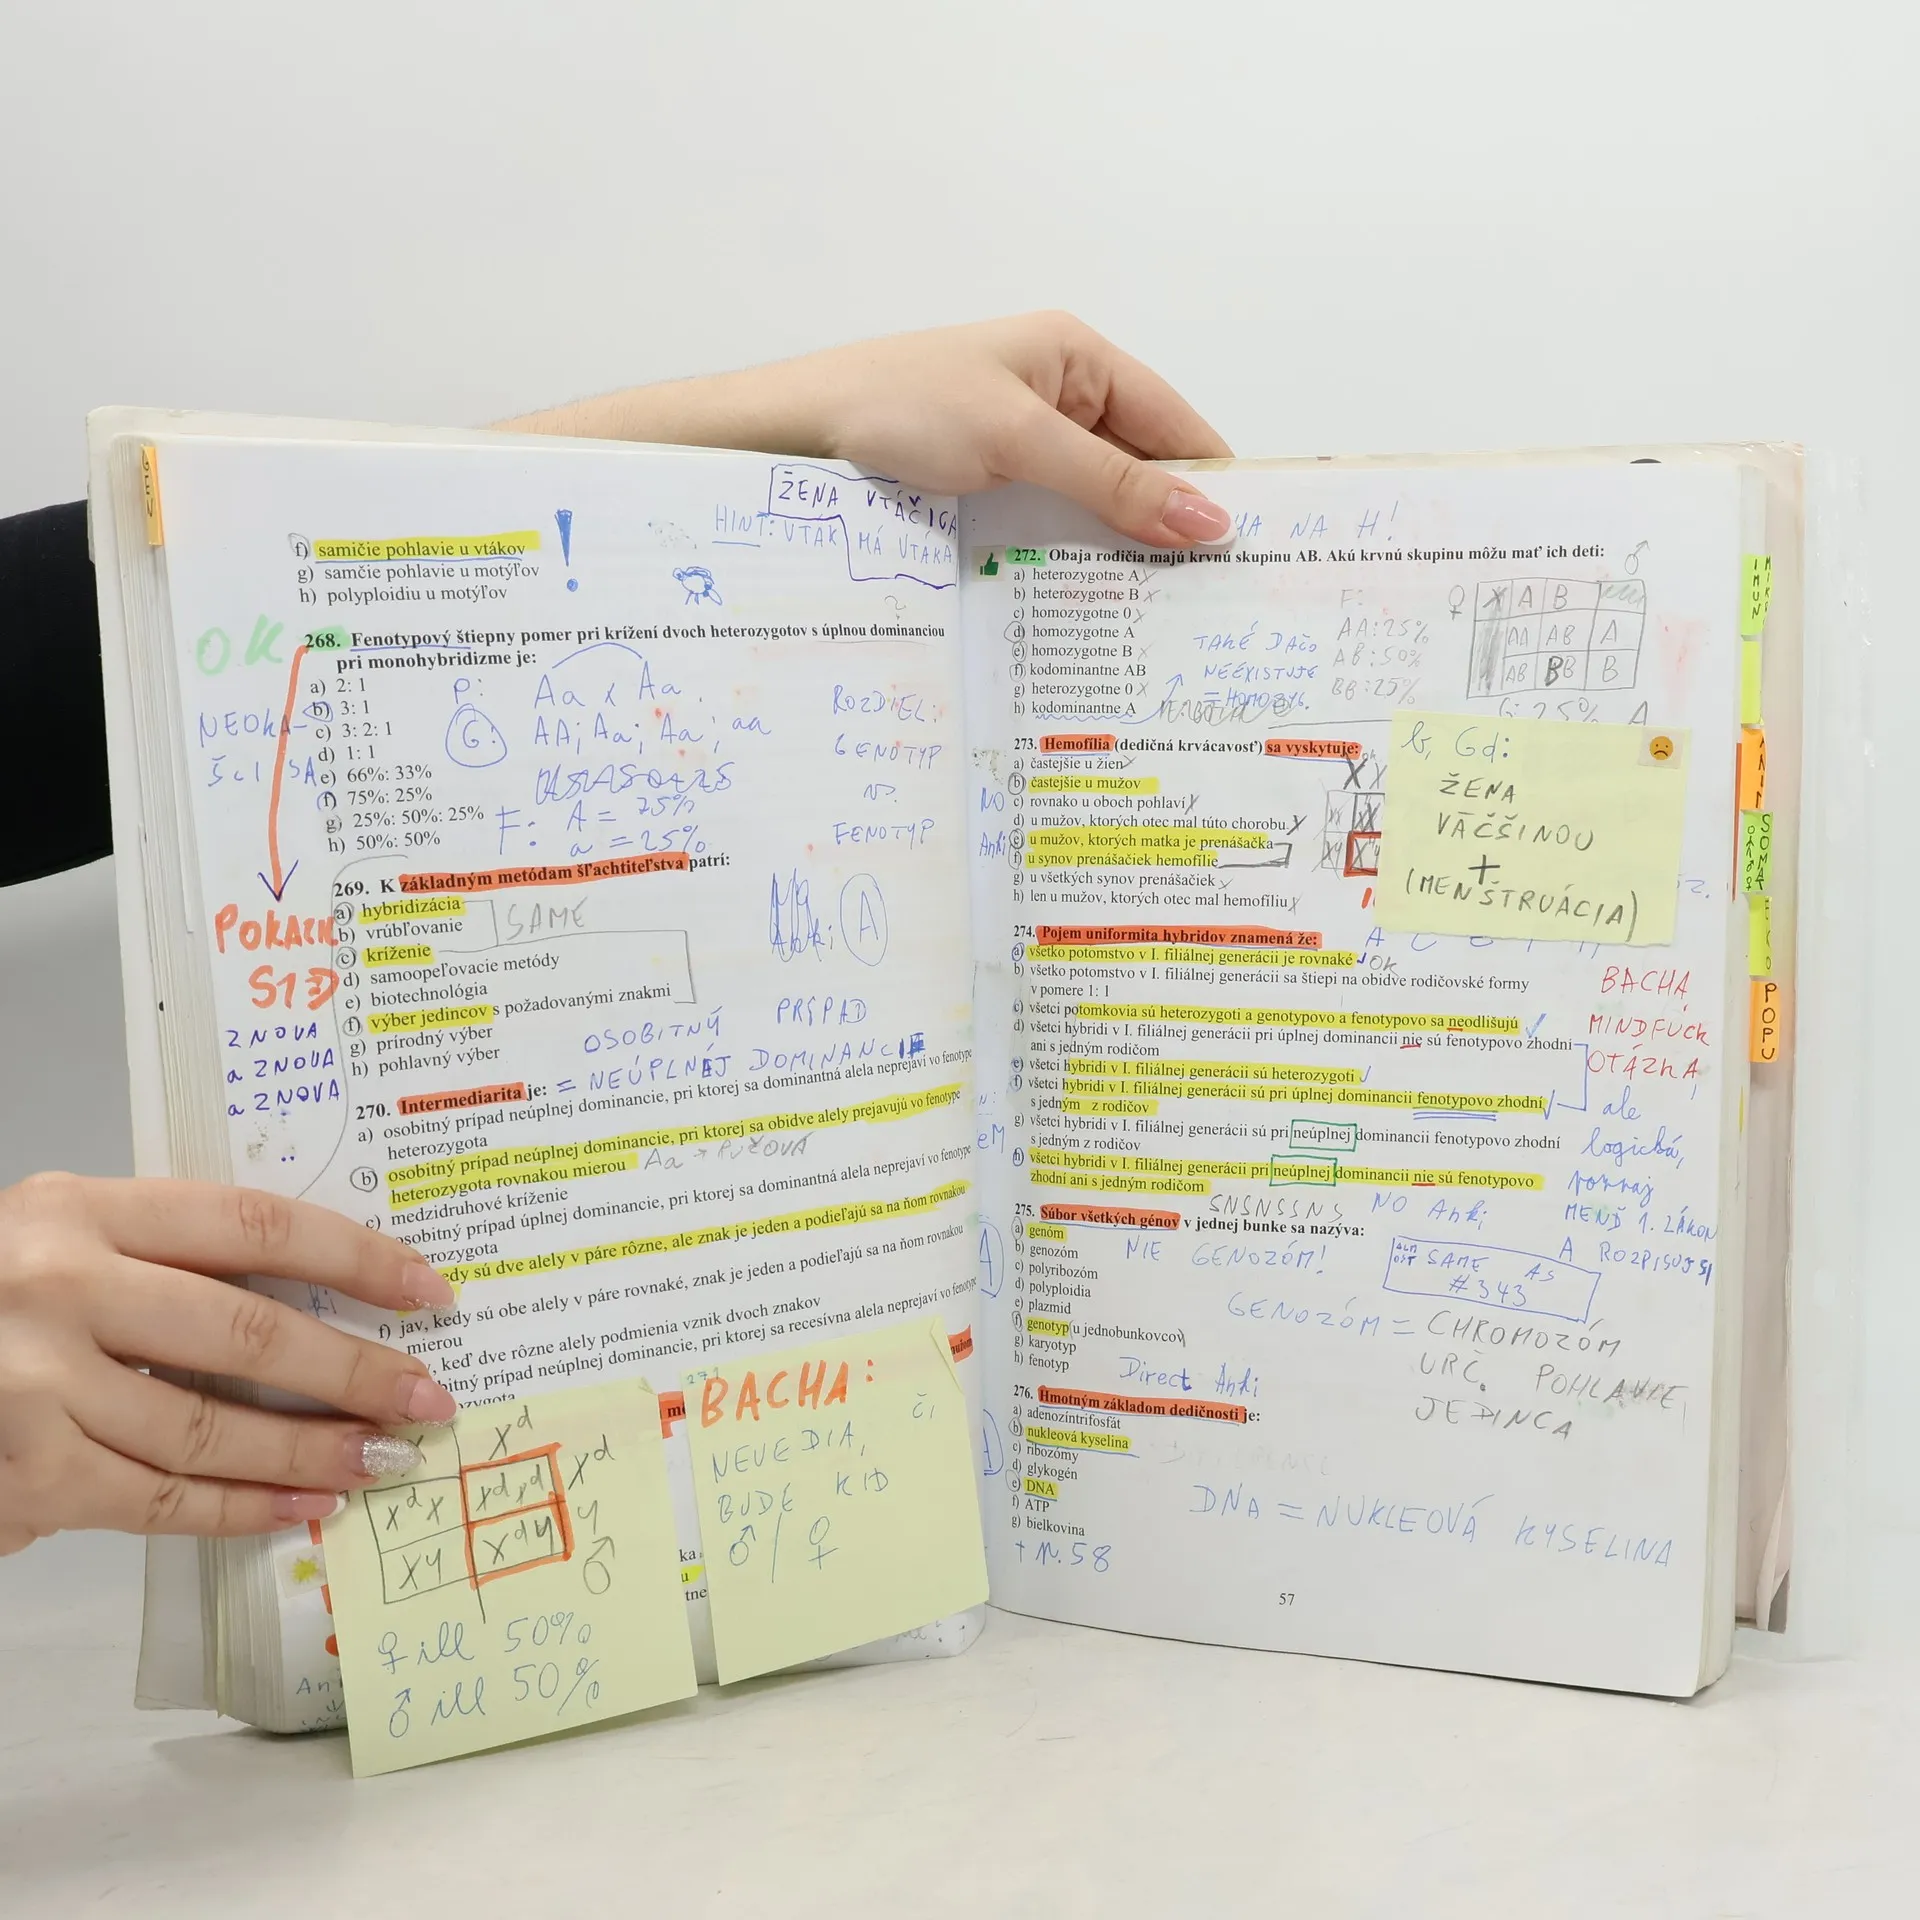 ŽENA VTÁČIGA
HINT: VTÁK MÁ VTÁKA
f) samičie pohlavie u vtákov
g) samčie pohlavie u motýľov
h) polyploidiu u motýľov
OK
268. Fenotypový štiepny pomer pri krížení dvoch heterozygotov s úplnou dominanciou
pri monohybridizme je:
a) 2: 1
b) 3: 1
c) 3: 2: 1
d) 1: 1
e) 66%: 33%
f) 75%: 25%
g) 25%: 50%: 25%
h) 50%: 50%
P: Aa x Aa
G: AA; Aa; Aa; aa
F: A = 75%
a = 25%
ROZDIEL:
GENOTYP
vs.
FENOTYP
269. K základným metódam šľachtiteľstva patrí:
a) hybridizácia
b) vrúbľovanie
c) kríženie
d) samoopeľovacie metódy
e) biotechnológia
f) výber jedincov s požadovanými znakmi
g) prírodný výber
h) pohlavný výber
SAME
A
Z NOVA
a ZNOVA
a ZNOVA
OSOBITNÝ PRÍPAD
= NEÚPLNEJ DOMINANCIE
270. Intermediarita je:
a) osobitný prípad neúplnej dominancie, pri ktorej sa dominantná alela neprejaví vo fenotype
heterozygota
b) osobitný prípad neúplnej dominancie, pri ktorej sa obidve alely prejavujú vo fenotype
heterozygota rovnakou mierou
c) medzidruhové kríženie
osobitný prípad úplnej dominancie, pri ktorej sa dominantná alela neprejaví vo fenotype
edy sú dve alely v páre rôzne, ale znak je jeden a podieľajú sa na ňom rovnakou
f) jav, kedy sú obe alely v páre rovnaké, znak je jeden a podieľajú sa na ňom rovnakou
mierou
keď dve rôzne alely podmienia vznik dvoch znakov
prípad neúplnej dominancie, pri ktorej sa recesívna alela neprejaví vo fenotype
X Xᵈ
XᵈX XᵈXᵈ Xᵈ
XY XᵈY Y ♂
♀ ill 50%
♂ ill 50%
271
BACHA:
NEVEDIA, či
BUDE KID
♂ / ♀
NA H!
272. Obaja rodičia majú krvnú skupinu AB. Akú krvnú skupinu môžu mať ich deti:
a) heterozygotne A
b) heterozygotne B
c) homozygotne 0
d) homozygotne A
e) homozygotne B
f) kodominantne AB
g) heterozygotne 0
h) kodominantne A
TAKÉ DAČO
NEEXISTUJE
= HOMOZYG.
F:
AA: 25%
AB: 50%
BB: 25%
♀ X A B ♂
AA AB A
AB BB B
273. Hemofília (dedičná krvácavosť) sa vyskytuje:
a) častejšie u žien
b) častejšie u mužov
c) rovnako u oboch pohlaví
d) u mužov, ktorých otec mal túto chorobu.
e) u mužov, ktorých matka je prenášačka
f) u synov prenášačiek hemofílie
g) u všetkých synov prenášačiek
h) len u mužov, ktorých otec mal hemofíliu
NO
Anki
b, Gd:
ŽENA
VÄČŠINOU
+
(MENŠTRUÁCIA)
274. Pojem uniformita hybridov znamená že:
a) všetko potomstvo v I. filiálnej generácii je rovnaké OK
b) všetko potomstvo v I. filiálnej generácii sa štiepi na obidve rodičovské formy
v pomere 1: 1
c) všetci potomkovia sú heterozygoti a genotypovo a fenotypovo sa neodlišujú
d) všetci hybridi v I. filiálnej generácii pri úplnej dominancii nie sú fenotypovo zhodní
ani s jedným rodičom
e) všetci hybridi v I. filiálnej generácii sú heterozygoti
f) všetci hybridi v I. filiálnej generácii sú pri úplnej dominancii fenotypovo zhodní
s jedným z rodičov
g) všetci hybridi v I. filiálnej generácii sú pri neúplnej dominancii fenotypovo zhodní
s jedným z rodičov
h) všetci hybridi v I. filiálnej generácii pri neúplnej dominancii nie sú fenotypovo
zhodní ani s jedným rodičom
BACHA,
MINDFUCK
OTÁZKA,
ale
logická,
MENĎ 1. ZÁKON
A ROZPISUJ SI
SNSNSSNS NO Anki
275. Súbor všetkých génov v jednej bunke sa nazýva:
a) genóm
b) genozóm
c) polyribozóm
d) polyploidia
e) plazmid
f) genotyp (u jednobunkovcov)
g) karyotyp
h) fenotyp
NIE GENOZÓM!
SAME AS
#343
GENOZÓM = CHROMOZÓM
URČ. POHLAVIE
JEDINCA
Direct Anki
276. Hmotným základom dedičnosti je:
a) adenozíntrifosfát
b) nukleová kyselina
c) ribozómy
d) glykogén
e) DNA
f) ATP
g) bielkovina
DNA = NUKLEOVÁ KYSELINA
57
POPU